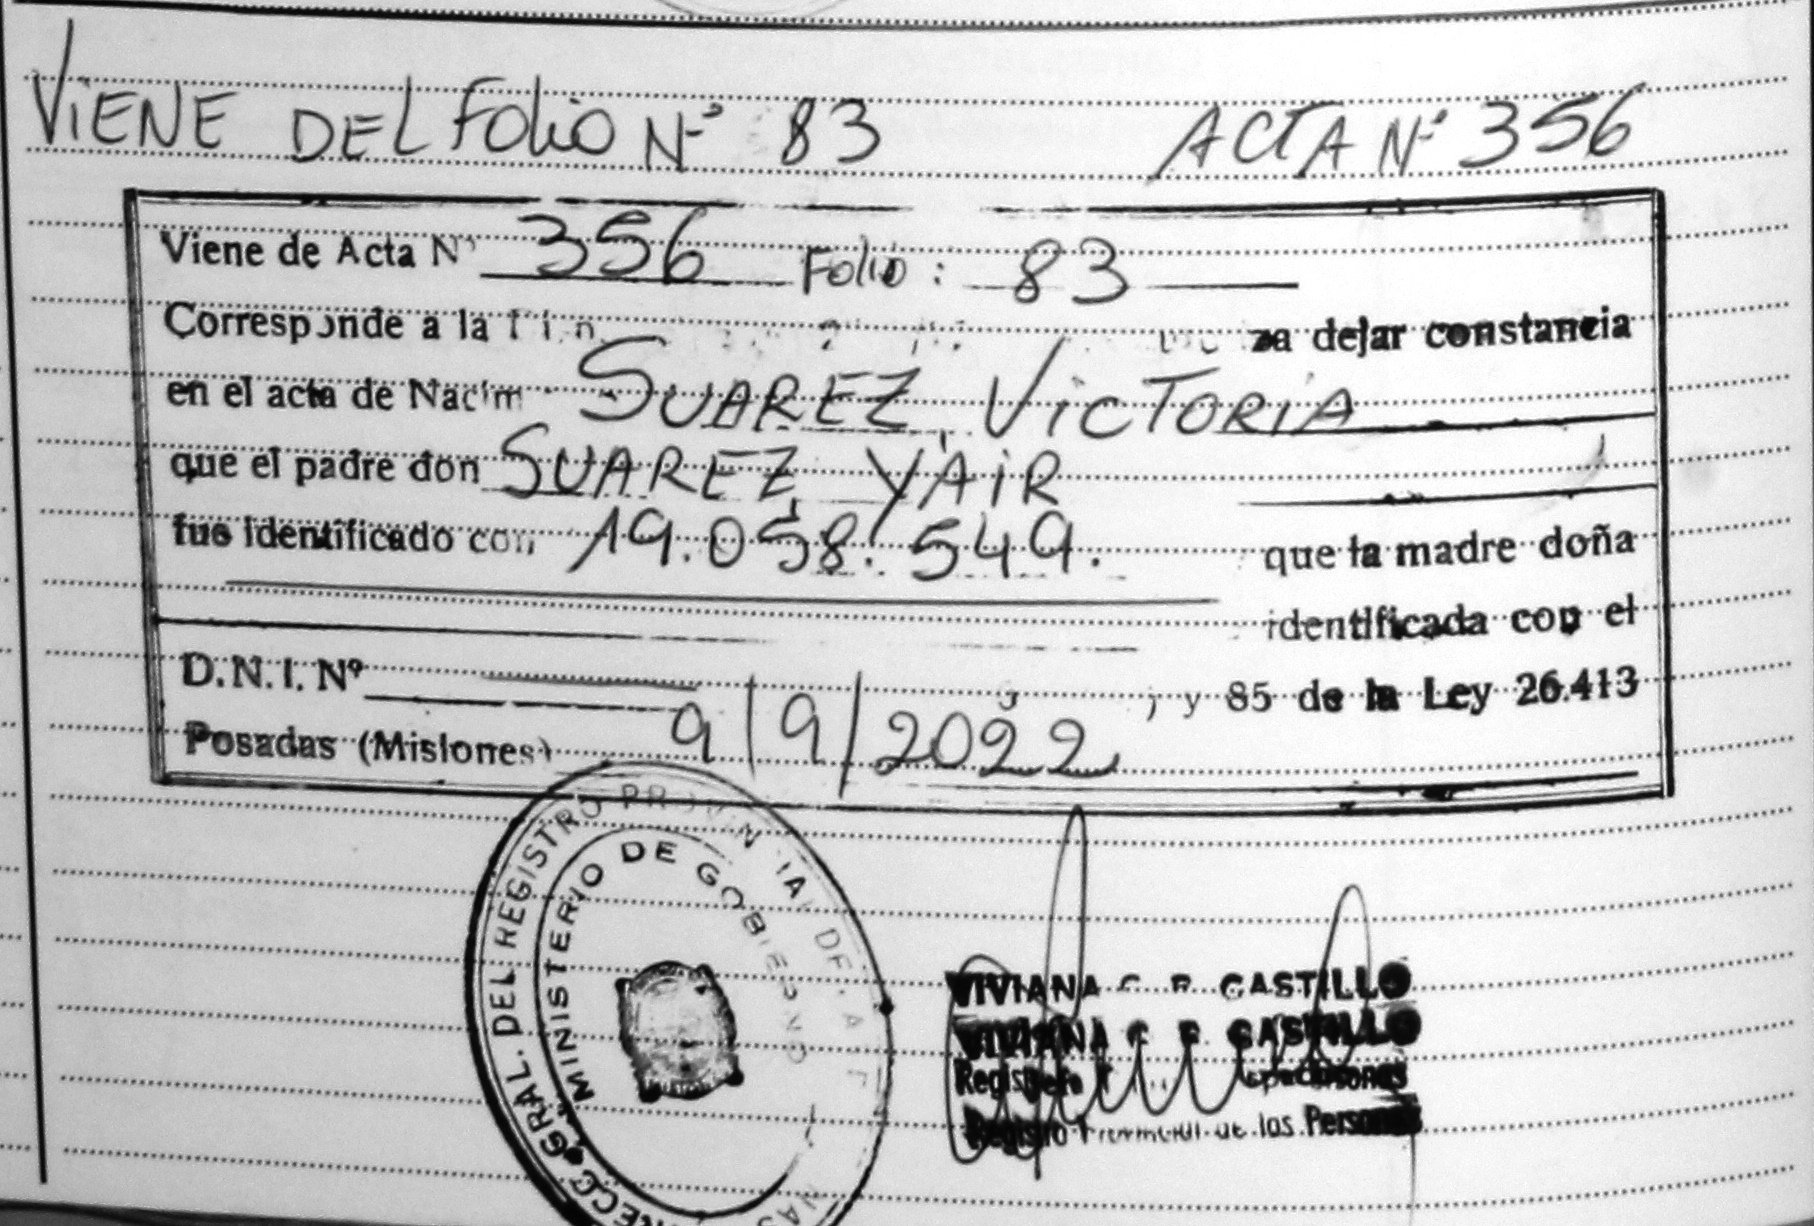 VIENE DEL FOLIO Nº 83 ACTA Nº 356
Viene de Acta Nº 356 Folio: 83
Corresponde a la za dejar constancia
en el acta de Nacim SUAREZ, VICTORIA
que el padre don SUAREZ, YAIR
fue identificado con 19.058.549. que la madre doña
identificada con el
D.N.I. Nº y 85 de la Ley 26.413
Posadas (Misiones) 9/9/2022
GRAL. DEL REGISTRO PROVINCIAL DE LAS
MINISTERIO DE GOBIERNO
VIVIANA C. CASTILLO
VIVIANA C. CASTILLO
Registro Provincial de las Personas